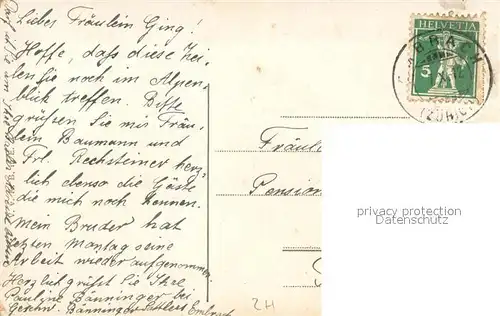 Liebes Fräulein Ging!
Hoffe, daß diese Zei-
len Sie noch im Alpen-
blick treffen. Bitte
grüßen Sie mir Fräu-
lein Baumann und
Frl. Rechsteiner herz-
lich ebenso die Gäste
die mich noch kennen.
Mein Bruder hat
letzten Montag seine
Arbeit wieder aufgenommen.
Herzlich grüßt Sie Ihre
Pauline Bänninger bei
Geschw. Bänninger Embrach
HELVETIA
5
BRACH
(ZÜRICH)
Fräul
Pension
privacy protection
Datenschutz
ZH